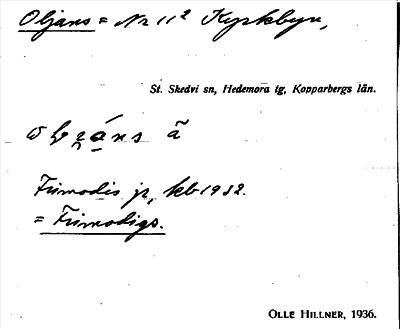 Oljans = Nr 11² Kyrkbyn,
St. Skedvi sn, Hedemora tg, Kopparbergs län.
ã
Frimodis jp, kb 1932.
= Frimodigs.
OLLE HILLNER, 1936.